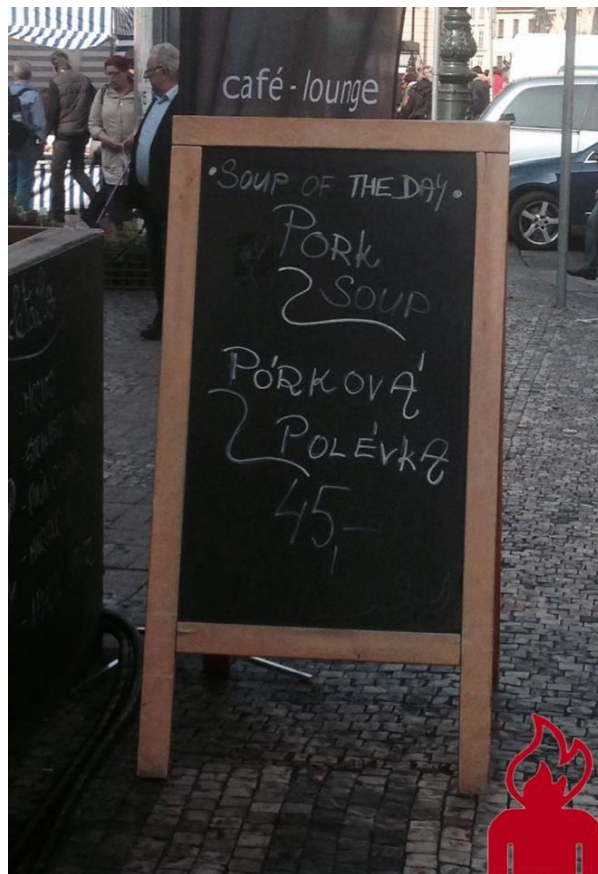 café - lounge
• SOUP OF THE DAY •
PORK
SOUP
PÓRKOVÁ
POLÉVKA
45,-